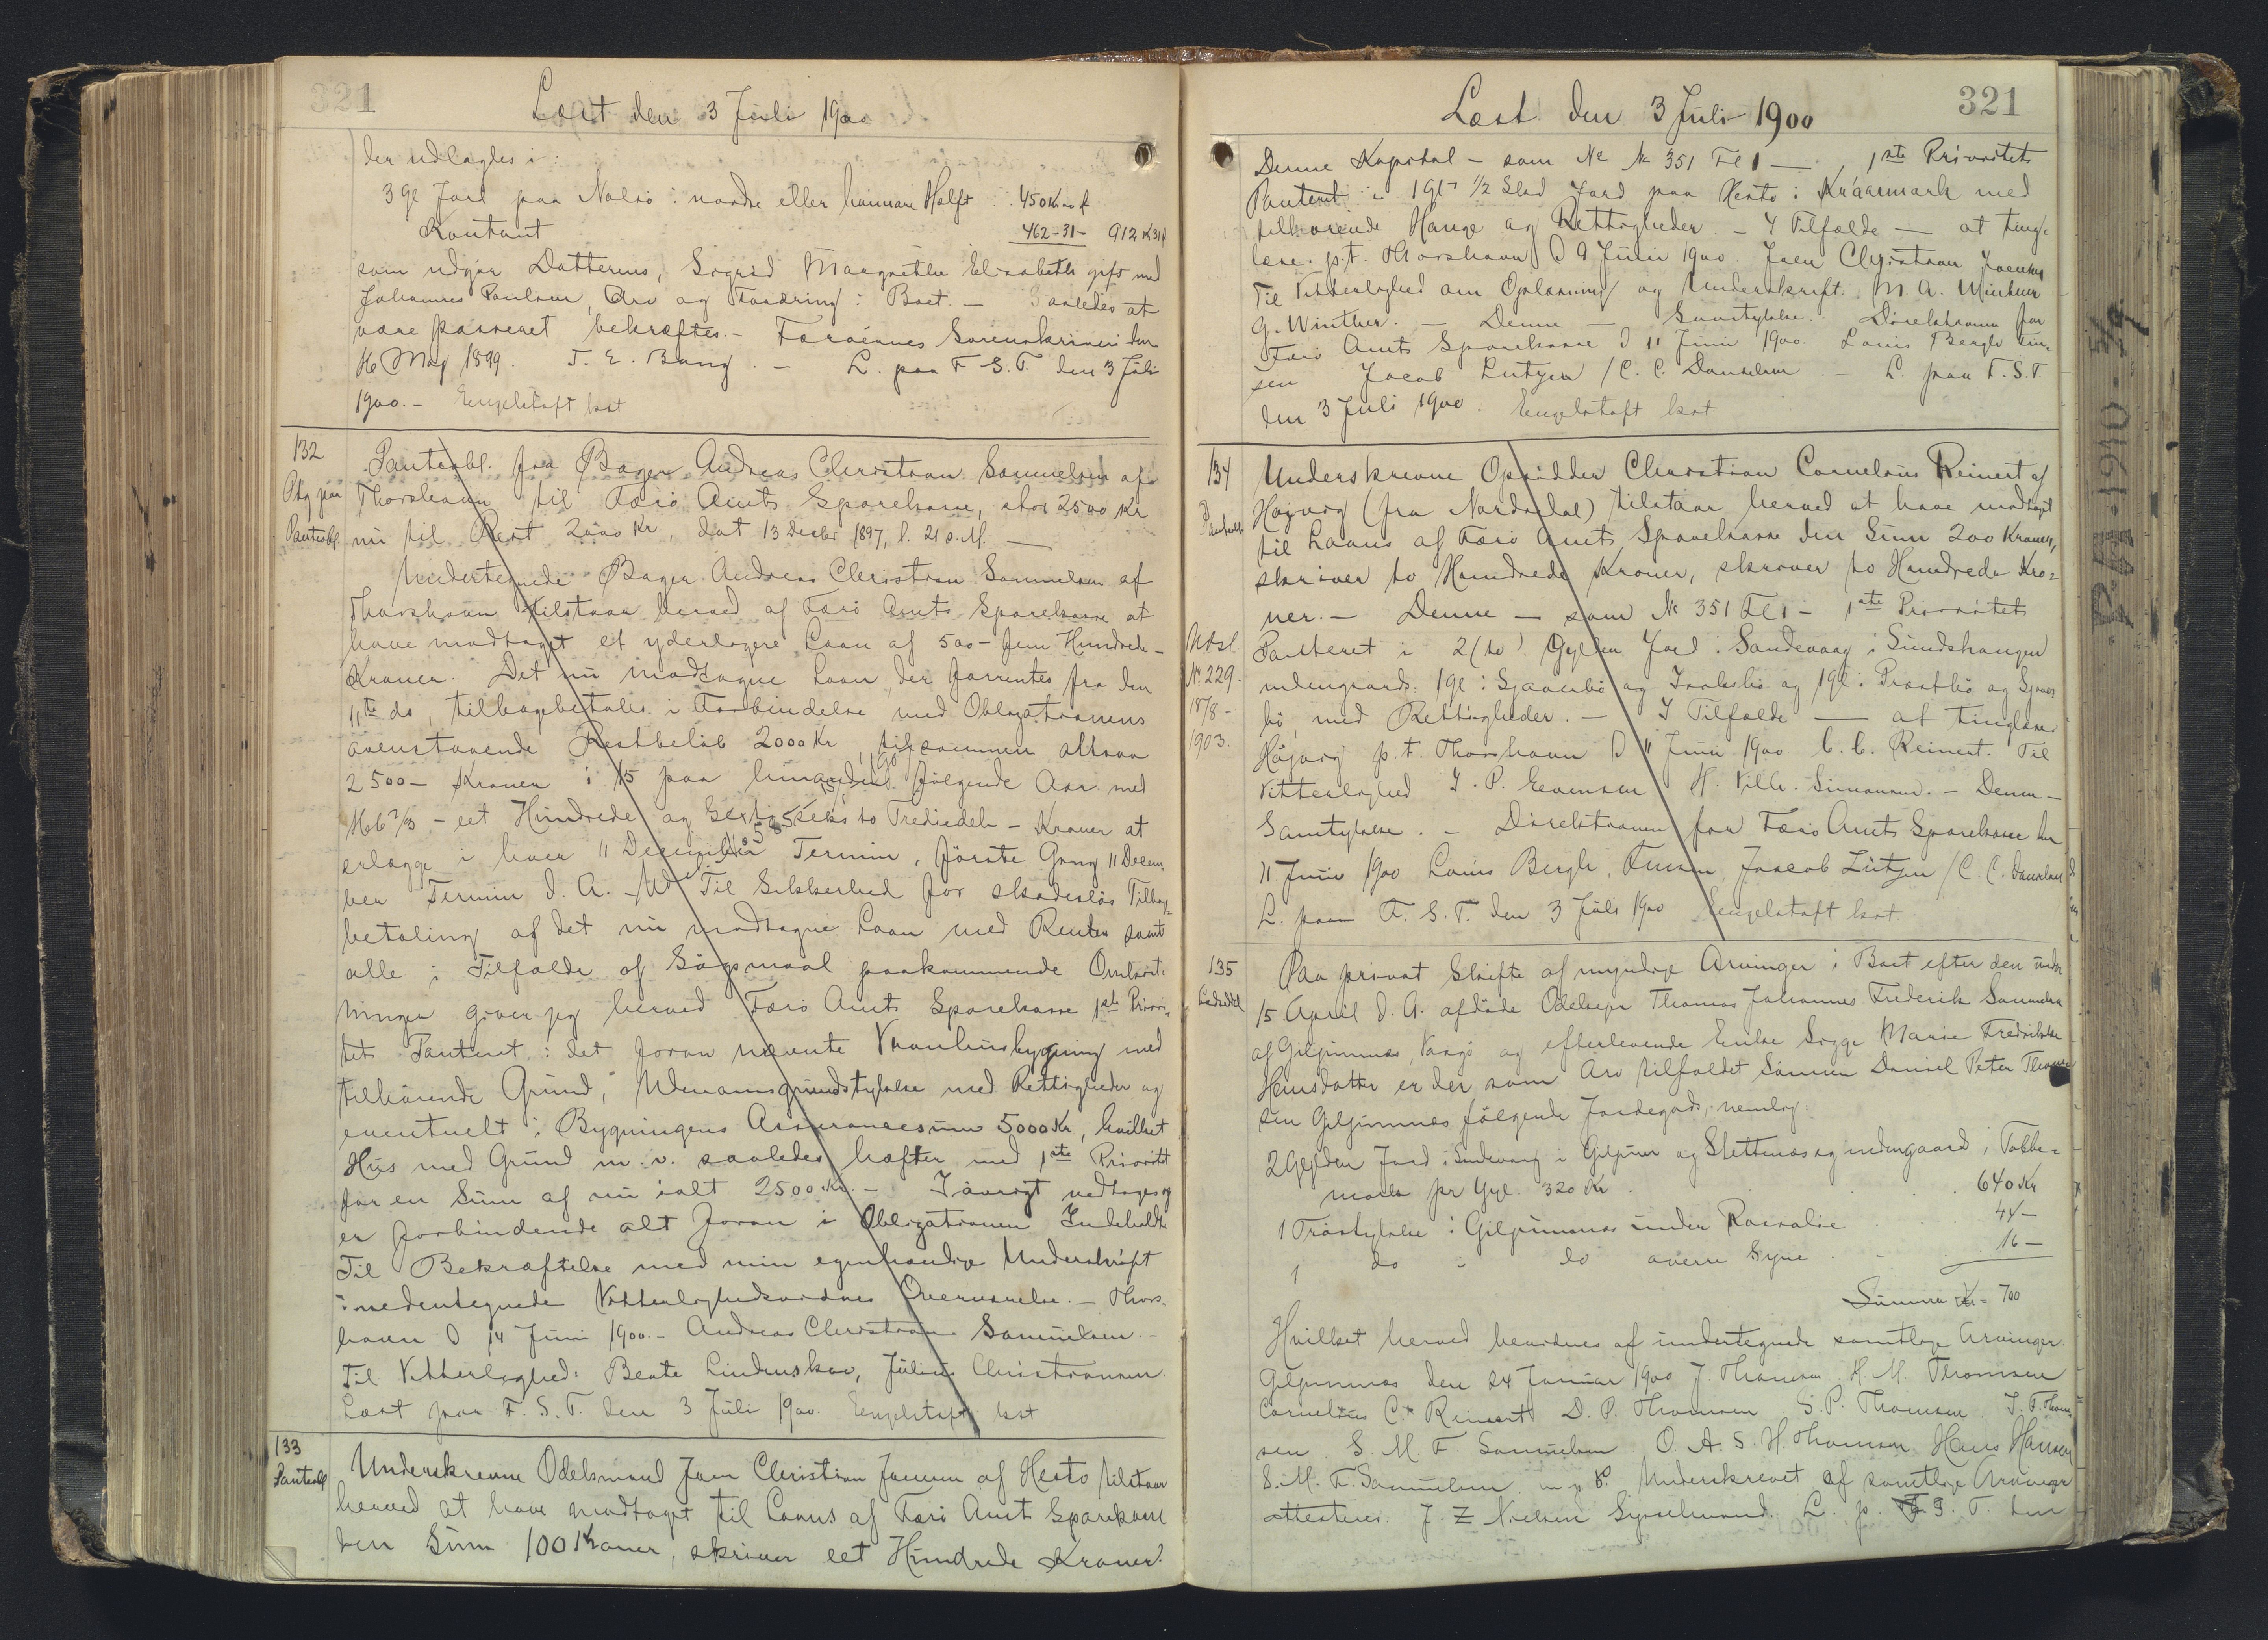 321
Læst den 3 Juli 1900
der udlagdes i:
3 Gl Jord paa Nolsø i nordre eller heimara Helft 450 Kr
Kontant 462-31- 912 K 31
som udgør Datterens, Sigrid Margrethe Elisabeth gift med
Johannes Poulsen, Arv og Fordring i Boet. — Saaledes at
være passeret bekræftes. — Færøernes Sorenskriveri den
16 Maj 1899. T. E. Bang. — L. paa F. S. T. den 3 Juli
1900. — Engelstoft kst
132
Ptg paa
Pantebl.
Pantebl. fra Bager Andreas Christian Samuelsen af
Thorshavn til Færø Amts Sparekasse, stor 2500 Kr
nu til Rest 2000 Kr, dat 13 Decbr 1897, l. 21 s. M. —
Undertegnede Bager Andreas Christian Samuelsen af
Thorshavn tilstaar herved af Færø Amts Sparekasse at
have modtaget et yderligere Laan af 500 – fem Hundrede –
Kroner. Det nu modtagne Laan, der forrentes fra den
11te ds, tilbagebetales i Forbindelse med Obligationens
ovenstaaende Restbeløb 2000 Kr, tilsammen altsaa
2500 – Kroner i 15 paa hinanden følgende Aar med
166 2/3 – eet Hundrede og Sexti sex to Trediedele – Kroner at
erlægge i hver 11 December Termin, første Gang 11 Decem
ber Termin d. A. — Til Sikkerhed for skadesløs Tilbage
betaling af det nu modtagne Laan med Renter samt
alle i Tilfælde af Søgsmaal paakommende Omkost-
ninger giver jeg herved Færø Amts Sparekasse 1ste Priori-
tets Panteret i det foran nævnte Vaanhusbygning med
tilhørende Grund, Udenomsgrundstykke med Rettigheder og
eventuelt i Bygningens Assurancesum 5000 Kr, hvilket
Hus med Grund m. v. saaledes hæfter med 1ste Prioritet
for en Sum af nu ialt 2500 Kr. — Iøvrigt vedtages og
er forbindende alt foran i Obligationen Indeholdte
Til Bekræftelse med min egenhændige Underskrift
i nedentegnede Vitterlighedsvidners Overværelse. — Thors-
havn D 14 Juni 1900. — Andreas Christian Samuelsen. —
Til Vitterlighed: Beate Lindenskov, Julius Christiansen.
Læst paa F. S. T. den 3 Juli 1900. Engelstoft kst
133
Pantebl
Underskrevne Odelsmand Joen Christian Joensen af Hestø tilstaar
herved at have modtaget til Laans af Færø Amts Sparekasse
den Sum 100 Kroner, skriver eet Hundrede Kroner.
Læst den 3 Juli 1900
321
Denne Kapital – som No № 351 Fl 1 — 1ste Prioritets
Panteret i 1 Gl 1/2 Skd Jord paa Hestø i Kráarmark med
tilhørende Hauge og Rettigheder. — I Tilfælde — at ting-
læse. p.t. Thorshavn D 9 Juni 1900. Joen Christian Joensen
Til Vitterlighed om Oplæsning og Underskrift. M. A. Winther
G. Winther. — Denne — Samtykke. Direktionen for
Færø Amts Sparekasse D 11 Juni 1900. Louis Bergh Fin-
sen Jacob Lützen / C. C. Danielsen — L. paa F.S.T.
den 3 Juli 1900. Engelstoft kst
134
Underskrevne Opsidder Christian Cornelius Reinert af
Højvig (fra Nordradal) tilstaar herved at have modtaget
til Laans af Færø Amts Sparekasse den Sum 200 Kroner,
skriver to Hundrede Kroner, skriver to Hundrede Kro-
ner. — Denne — som № 351 Fl 1 – 1ste Prioritets
Udsl.
№ 229.
18/8 –
1903.
Panteret i 2 (to) Gylden Jord i Sandevaag i Sundshaugen
indengaards: 1 Gl i Sjaverbø og Isaksbø og 1 Gl i Prostbø og Sjaver
bø med Rettigheder. — I Tilfælde — at tinglæse
Højvig p.t. Thorshavn D 11 Juni 1900 C. C. Reinert. Til
Vitterlighed I. P. Evensen H. Vilh. Simonsen. — Denne —
Samtykke. — Direktionen for Færø Amts Sparekasse den
11 Juni 1900 Louis Bergh, Finsen, Jacob Lützen / C. C. Danielsen
L. paa F. S. T. den 3 Juli 1900 Engelstoft kst.
135
Paa privat Skifte af myndige Arvinger i Boet efter den under
15 April d. A. afdøde Odelsejer Thomas Johannes Frederik Samuelsen
af Giljumnæs, Vaagø og efterlevende Enke Sigge Marie Fredrikke
Heinsdatter er der som Arv tilfaldet Sønnen Daniel Peter Thom
sen Giljumnæs følgende Jordegods, nemlig:
2 Gylden Jord i Sandevaag i Giljum og Slettenæs og indengaard i Tobbe-
mark pr Gyl. 320 Kr 640 Kr
1 Træstykke i Giljumnæs under Rossalie 44 –
1 do - do averre Syne 16 –
Summa Kr = 700
Hvilket herved bevidnes af undertegnede samtlige Arvinger.
Giljumnæs den 24 Januar 1900 J. Thomsen H. M. Thomsen
Cornelius C. Reinert D. P. Thomsen S. P. Thomsen J. F. Thom
sen S. M. F. Samuelsen O. A. S. H. Thomsen Hans Hansen
S. M. F. Samuelsen m p P. Underskrevet af samtlige Arvinger
attesteres. J. Z Nielsen Sysselmand. L. p. F. S. T. den